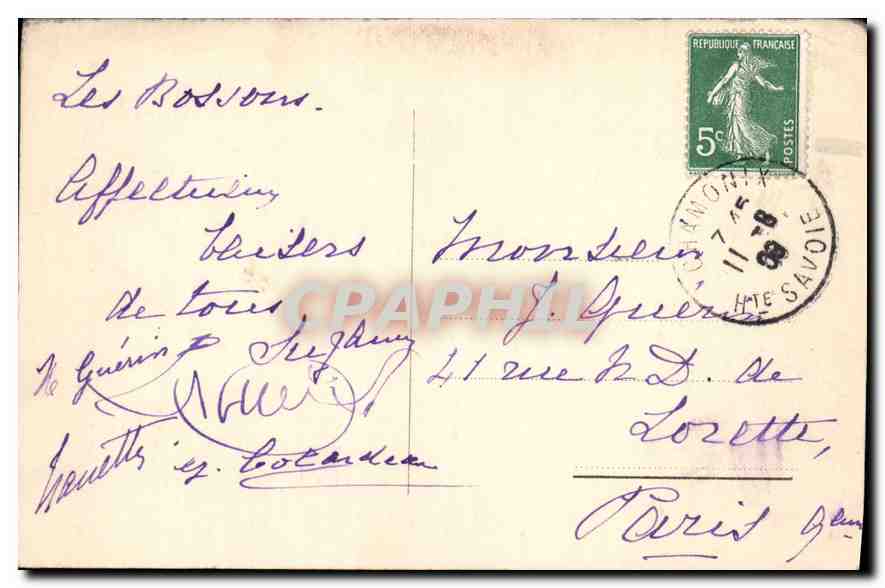 Les Bossons.
Affectueux
baisers
de tous
Suzanne
H Guérin
ey. Colardeau
RÉPUBLIQUE FRANÇAISE
5c
POSTES
CHAMONIX
7 45
11 - 8
09
HTE SAVOIE
Monsieur
J. Guérin
41 rue N. D. de
Lorette,
Paris 9eme
CPAPHIL